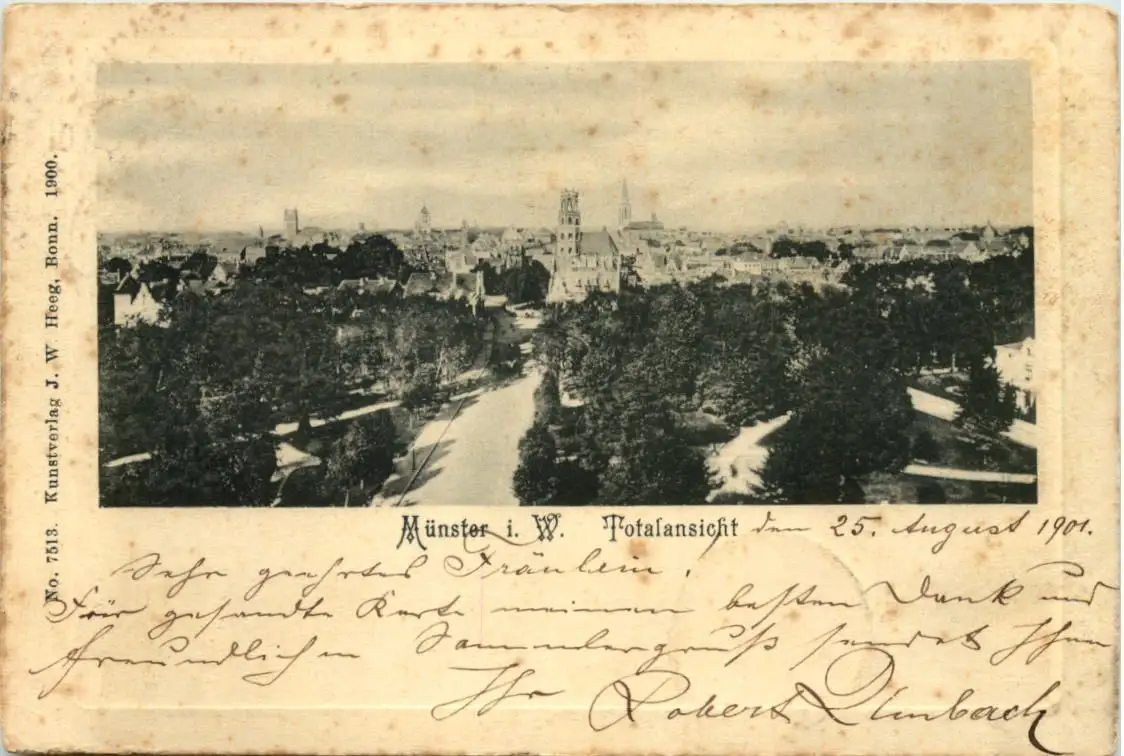 No. 7513. Kunstverlag J. W. Heeg, Bonn. 1900.
Münster i. W. Totalansicht den 25. August 1901.
Sehr geehrtes Fräulein!
Für gesandte Karte meinen besten Dank und
freundlichen Sammlergruß sendet Ihnen
Ihr Robert